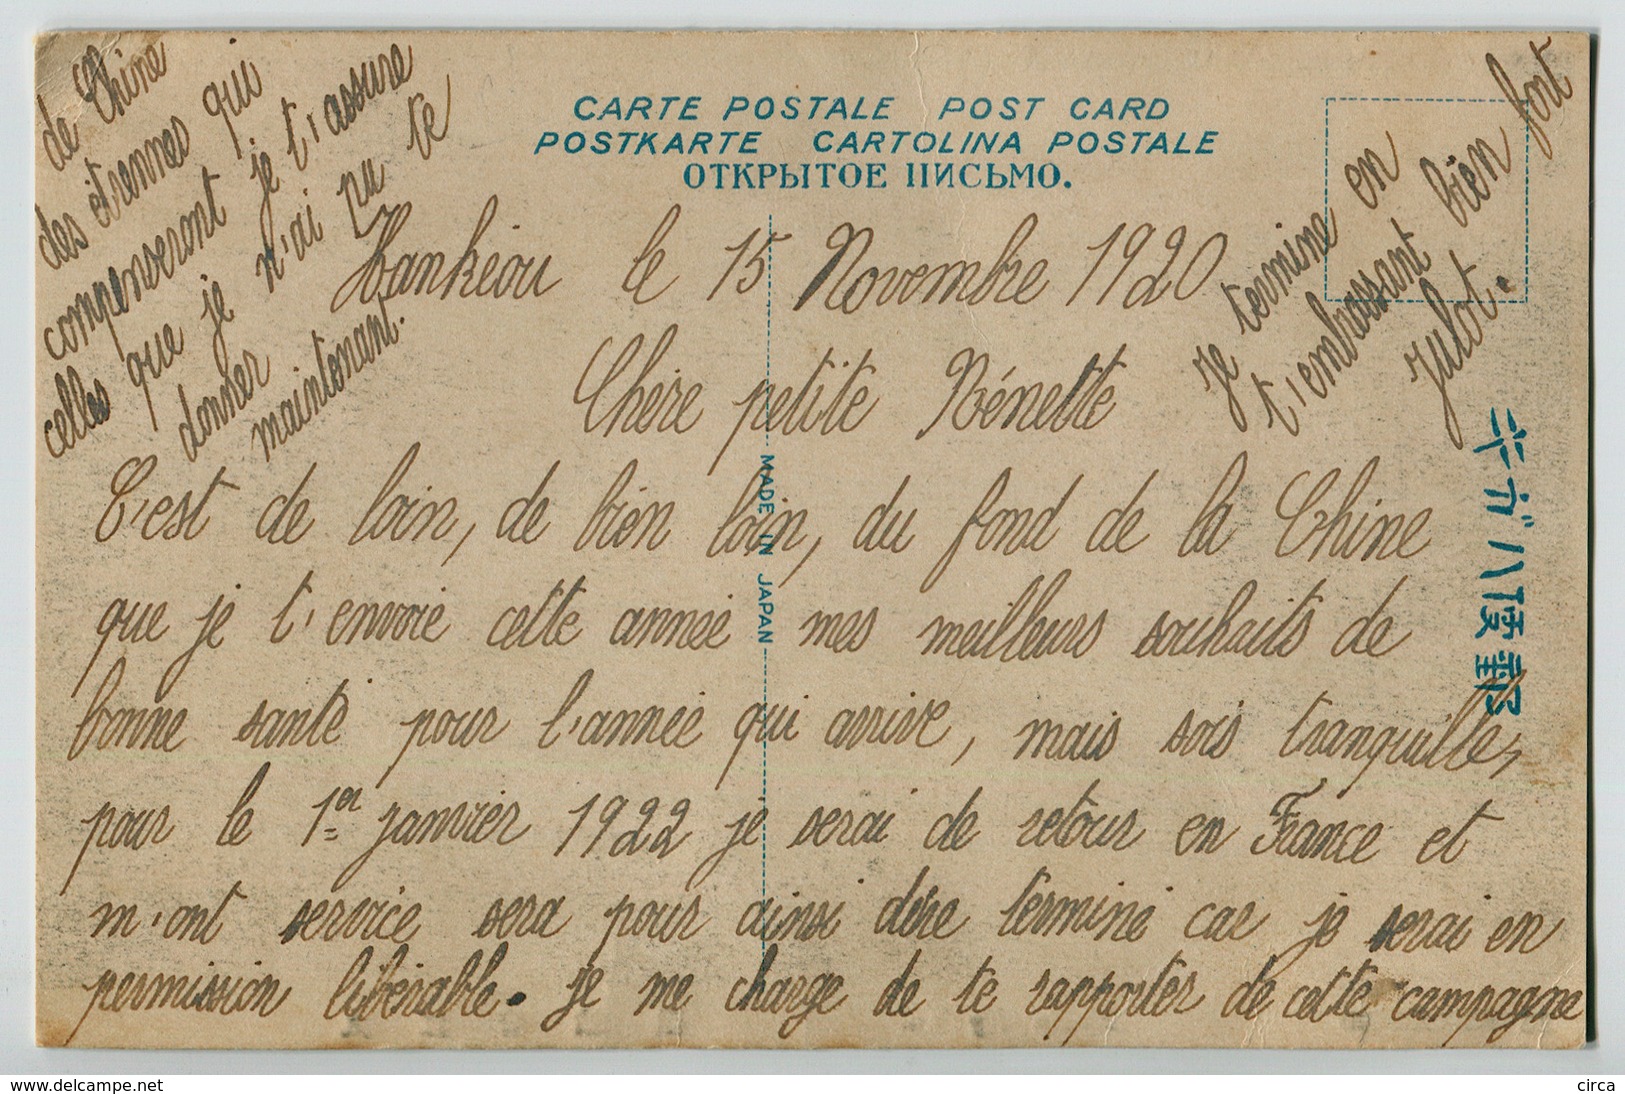 CARTE POSTALE POST CARD
POSTKARTE CARTOLINA POSTALE
ОТКРЫТОЕ ПИСЬМО.
MADE IN JAPAN
Hankéou le 15 Novembre 1920
Chère petite Nénette
C'est de loin, de bien loin, du fond de la Chine
que je t'envoie cette année mes meilleurs souhaits de
bonne santé pour l'année qui arrive, mais sois tranquille,
pour le 1er janvier 1922 je serai de retour en France et
m'ont service sera pour ainsi dire terminé car je serai en
permission libérable. je me charge de te rapporter de cette campagne
de Chine
des étrennes qui
compenseront je t'assure
celles que je n'ai pu te
donner
maintenant.
Je termine en
t'embrassant bien fort
Julot.
delcampe.net
circa